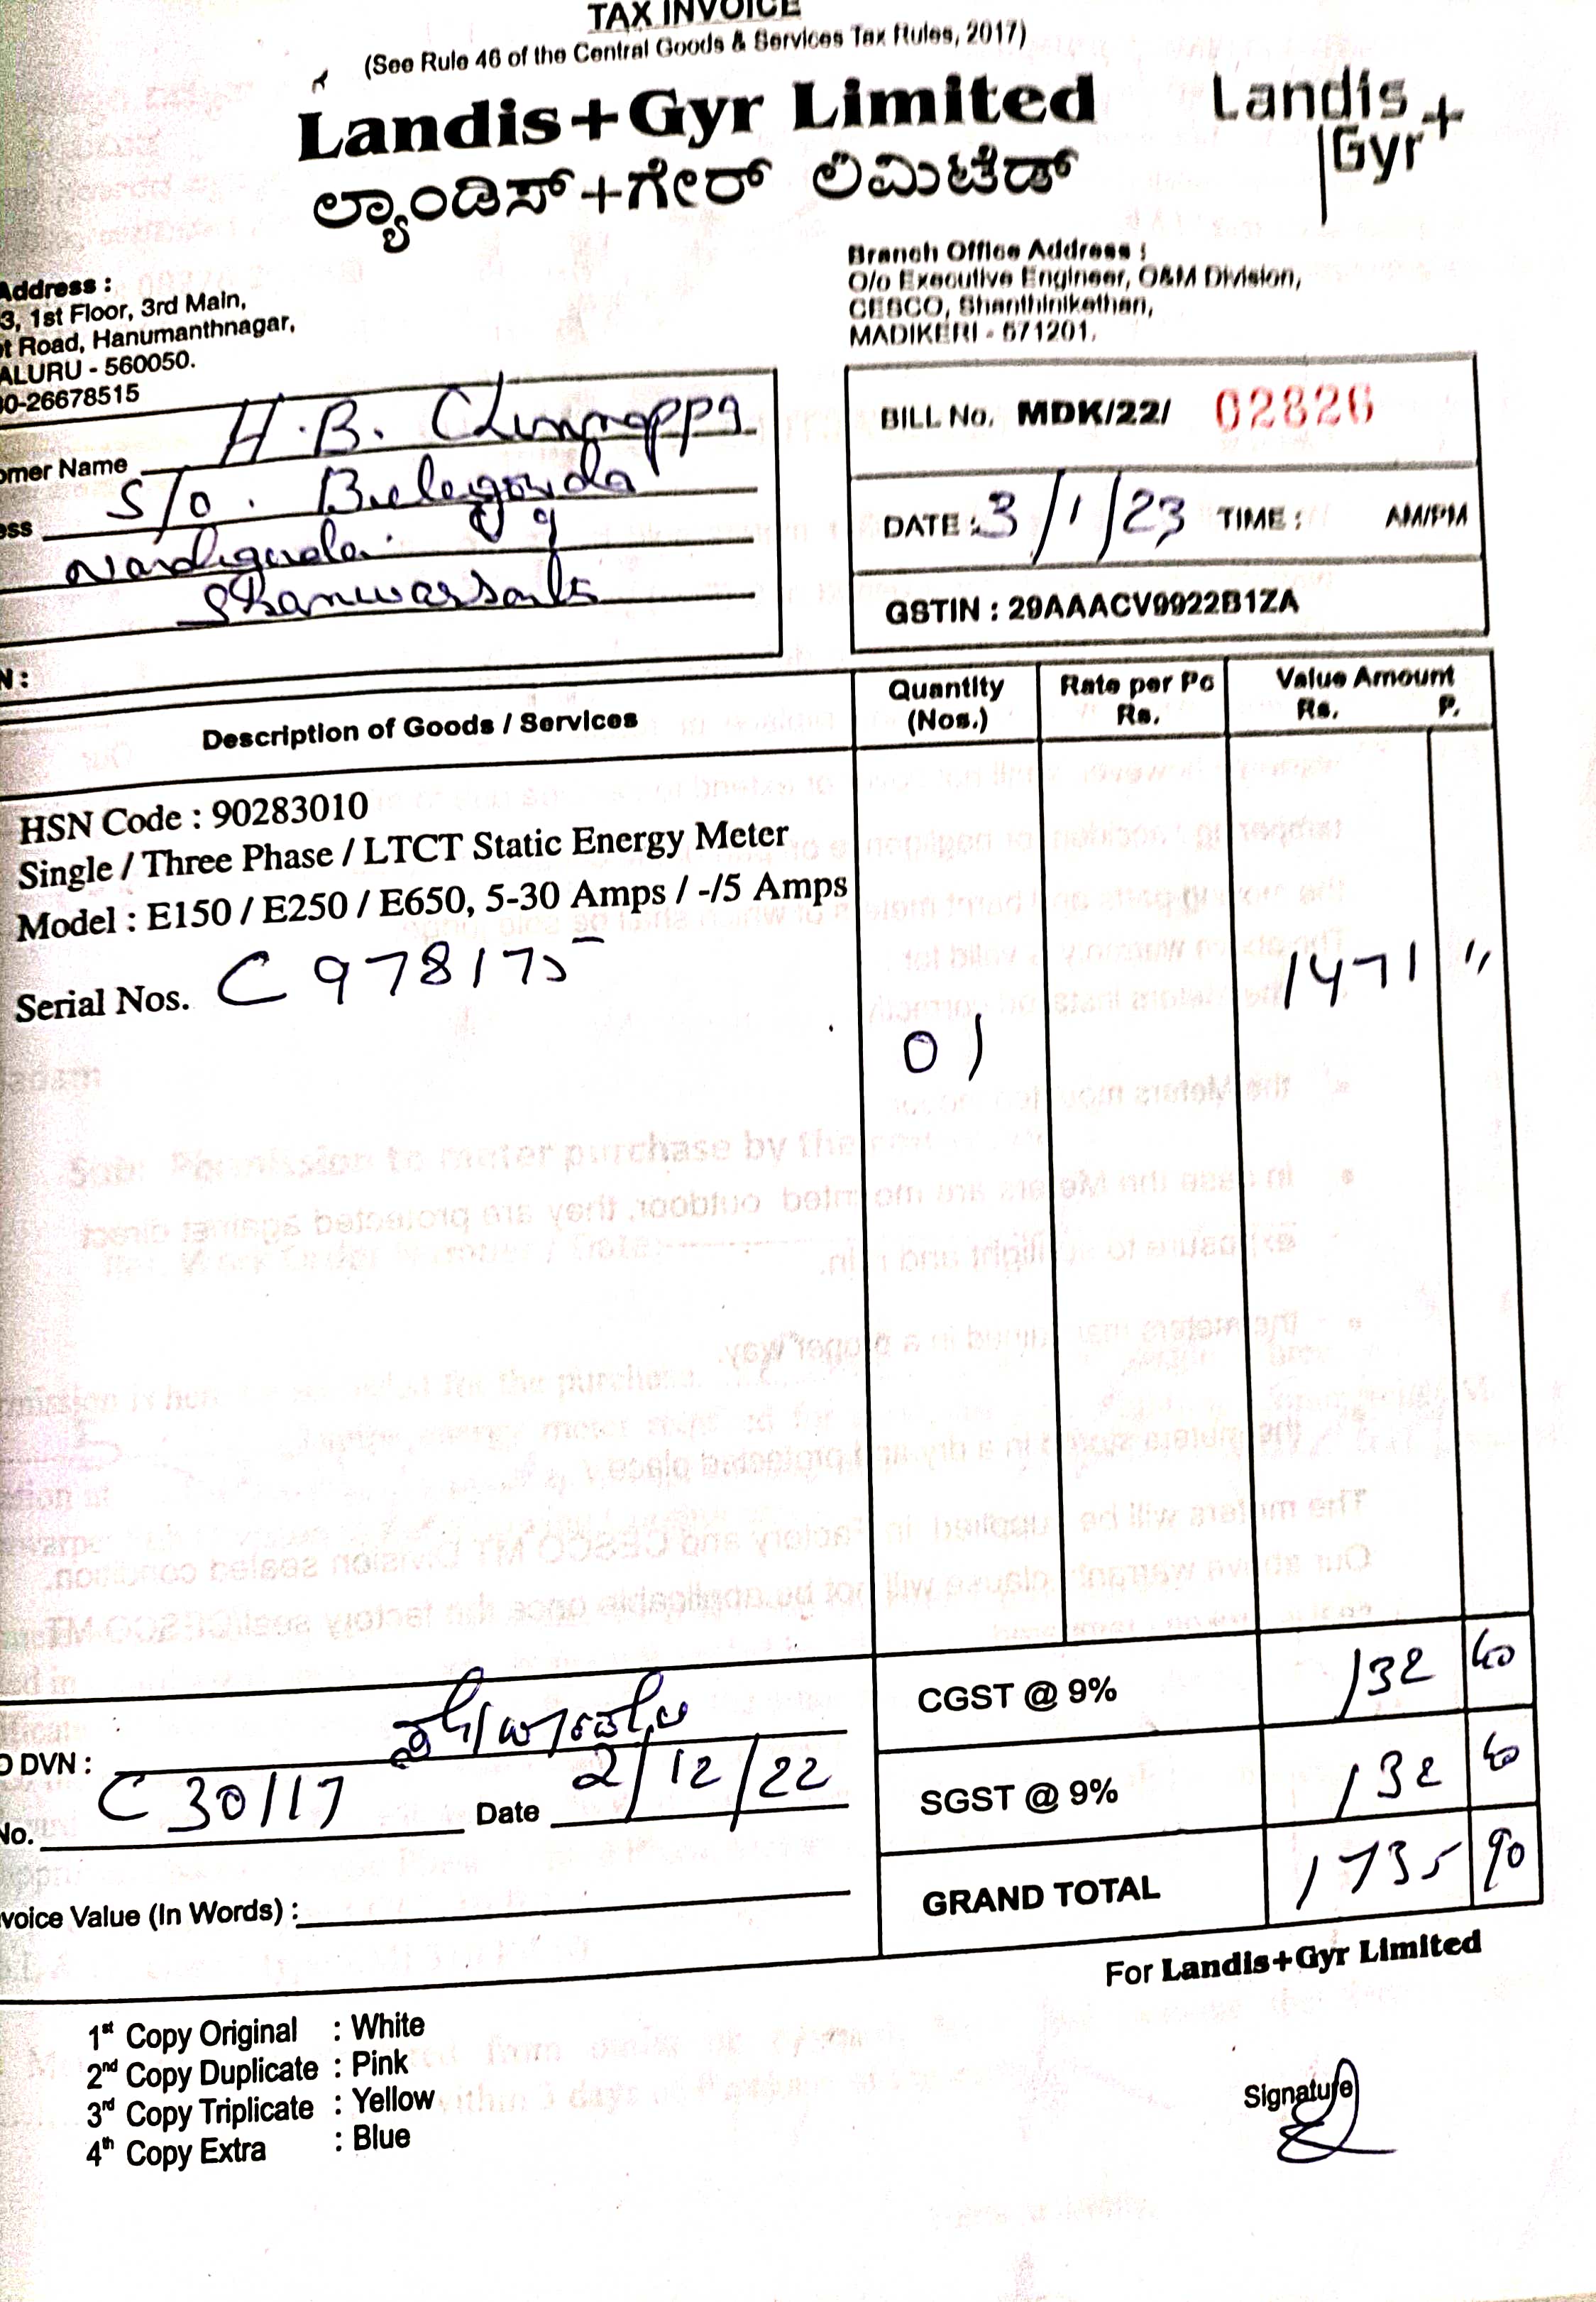 TAX INVOICE
(See Rule 46 of the Central Goods & Services Tax Rules, 2017)
Landis+Gyr Limited
Landis+
Gyr
ಲ್ಯಾಂಡಿಸ್+ಗೇರ್ ಲಿಮಿಟೆಡ್
Address :
3, 1st Floor, 3rd Main,
t Road, Hanumanthnagar,
ALURU - 560050.
0-26678515
Branch Office Address :
O/o Executive Engineer, O&M Division,
CESCO, Shanthinikethan,
MADIKERI - 571201.
omer Name H.B. Chinnappa
ess S/o. Belegowda
Shanwarsanthe
BILL No. MDK/22/ 02826
DATE : 3/1/23 TIME : AM/PM
GSTIN : 29AAACV9922B1ZA
N :
Description of Goods / Services
Quantity (Nos.)
Rate per Pc Rs.
Value Amount Rs. P.
HSN Code : 90283010
Single / Three Phase / LTCT Static Energy Meter
Model : E150 / E250 / E650, 5-30 Amps / -/5 Amps
Serial Nos. C978175
01
1471 "
CGST @ 9% 132 40
SGST @ 9% 132 40
GRAND TOTAL 1735 90
O DVN :
No. C30/17 Date 2/12/22
voice Value (In Words) :
For Landis+Gyr Limited
1st Copy Original : White
2nd Copy Duplicate : Pink
3rd Copy Triplicate : Yellow
4th Copy Extra : Blue
Signature